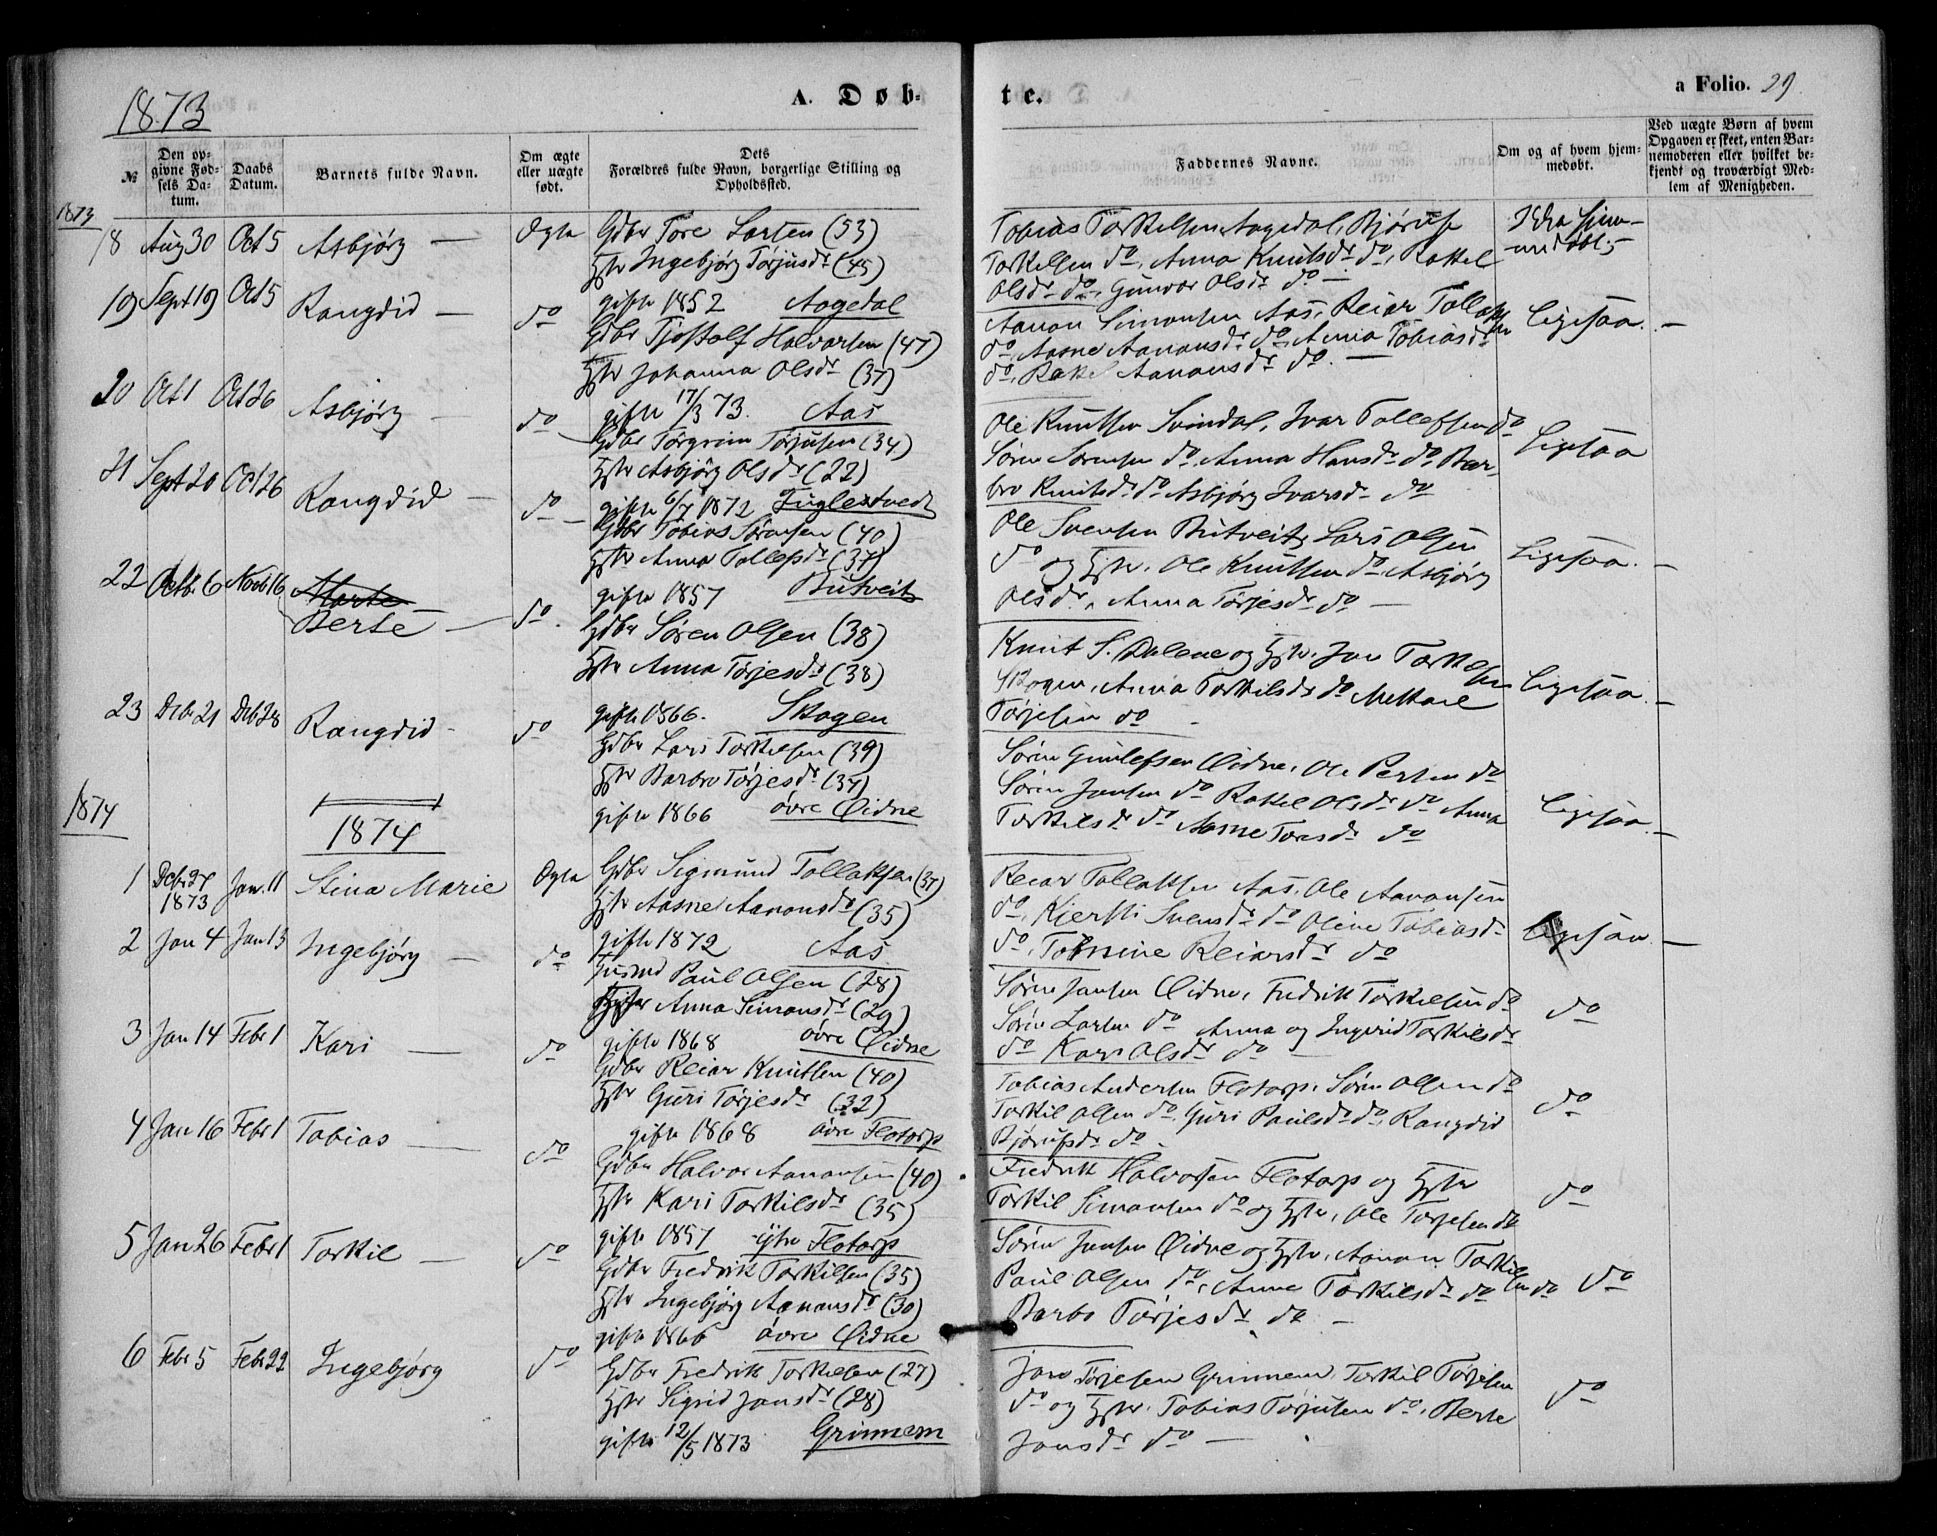 1873
A. Døb-
te.
a Folio. 29
№
Den op-
givne Fød-
sels Da-
tum.
Daabs
Datum.
Barnets fulde Navn.
Om ægte
eller uægte
født.
Dets
Forældres fulde Navn, borgerlige Stilling og
Opholdssted.
Faddernes Navne.
Om og af hvem hjem-
medøbt.
Ved uægte Børn af hvem
Opgaven er skeet, enten Bar-
nemoderen eller hvilket be-
kjendt og troværdigt Med-
lem af Menigheden.
1873
18 Aug 30 Oct 5 Asbjørg — Ægte Gdbr Tore Larsen (53)
Hstr Ingebjørg Tørjusdr (45)
gifte 1852 Aagedal
Tobias Torkelsen Aagedal, Bjørulf
Torkelsen do, Anna Knutsdr do, Rakkel
Olsdr do, Gunvor Olsdr do —
Ikke hjem-
medøbt
19 Sept 19 Oct 5 Rangdid — do
Gdbr Tjøstolf Halvorsen (47)
Hstr Johanna Olsdr (37)
gifte 17/3 73. Aas
Aanon Simonsen Aas, Reiar Tollaksen
do, Aasne Aanonsdr do, Anna Tobiasdr
do, Rakel Aanonsdr do. —
Ligesaa. —
20 Oct 1 Oct 26 Asbjørg — do
Gdbr Torgrim Torjusen (34)
Hstr Asbjørg Olsdr (22)
gifte 6/7 1872 Fuglestvedt
Ole Knutsen Svindal, Ivar Tollefsen do
Søren Sørensen do, Anna Hansdr do, Bar-
bro Knutsdr do Asbjørg Ivarsdr do
Ligesaa
21 Sept 20 Oct 26 Rangdid — do —
Gdbr Tobias Sørensen (40)
Hstr Anna Tollefsdr (37)
gifte 1857 Butveit
Ole Svensen Butveit, Lars Olsen
do og Hstr. Ole Knutsen do, Asbjørg
Olsdr, Anna Tørjesdr do —
Ligesaa. —
22 Octbr. 6 Novb 16 Marte
Berte — do.
Gdbr Søren Olsen (38)
Hstr Anna Tørjesdr (38)
gifte 1866. Skogen
Knut S. Dalene og Hstr. Jon Torkelsen
Skogen, Anna Torkilsdr do Mikkael
Tørjesen do —
Ligesaa. —
23 Dcbr 21 Dcb 28 Rangdid — do
Gdbr Lars Torkelsen (39)
Hstr Barbro Tørjesdr (34)
gifte 1866 øvre Øidne
Søren Gunlefsen Øidne, Ole Persen do
Søren Jansen do Rakkel Olsdr do Anna
Torkilsdr do Aasne Toresdr do
Ligesaa. —
1874
1874
1 Dcbr 27
1873 Jan. 11 Stina Marie Ægte Gdbr Sigmund Tollaksen (37)
Hstr Aasne Aanonsdr (35)
gifte 1872 Aas
Reiar Tollaksen Aas, Ole Aanonsen
do, Kjersti Svensdr do Oline Tobiasdr
do, Tomine Reiarsdr do
Ligesaa —
2 Jan 4 Jan 13 Ingebjørg — do
Paul Olsen (28)
Anna Simonsdr (29)
gifte 1868 øvre Øidne
Søren Jansen Øidne, Fredrik Torkilsen do
Søren Larsen do Anna og Ingerid Torkilsdr
do Kari Olsdr do —
do
3 Jan 14 Febr 1 Kari — do
Gdbr Reiar Knutsen (40)
Hstr Guri Tørjesdr (32)
gifte 1868 øvre Flotorp
Tobias Andersen Flotorp, Søren Olsen do
Torkil Olsen do, Guri Paulsdr do, Rangdid
Bjørufsdr do.
do
4 Jan 16 Febr 1 Tobias — do
Gdbr Halvor Aanonsen (40)
Hstr Kari Torkilsdr (35)
gifte 1857 ytre Flotorp
Fredrik Halvorsen Flotorp og Hstr
Torkil Simonsen do og Hstr, Ole Torjesen do
do
5 Jan 26 Febr 1 Torkil — do
Gdbr Fredrik Torkilsen (35)
Hstr Ingebjørg Aanonsdr (30)
gifte 1866 øvre Øidne
Søren Jansen Øidne og Hstr, Aanon Torkilsen do
Paul Olsen do, Anne Torkilsdr do
Barbo Tørjesdr do —
do
6 Febr 5 Febr 22 Ingebjørg do
Gdbr Fredrik Torkelsen (27)
Hstr Sigrid Jansdr (28)
gifte 12/5 1873 Grinnem
Jans Tørjesen Grinnem, Torkil Tørjesen
do og Hstr. Tobias Torjusen do, Berte
Jansdr do —
do